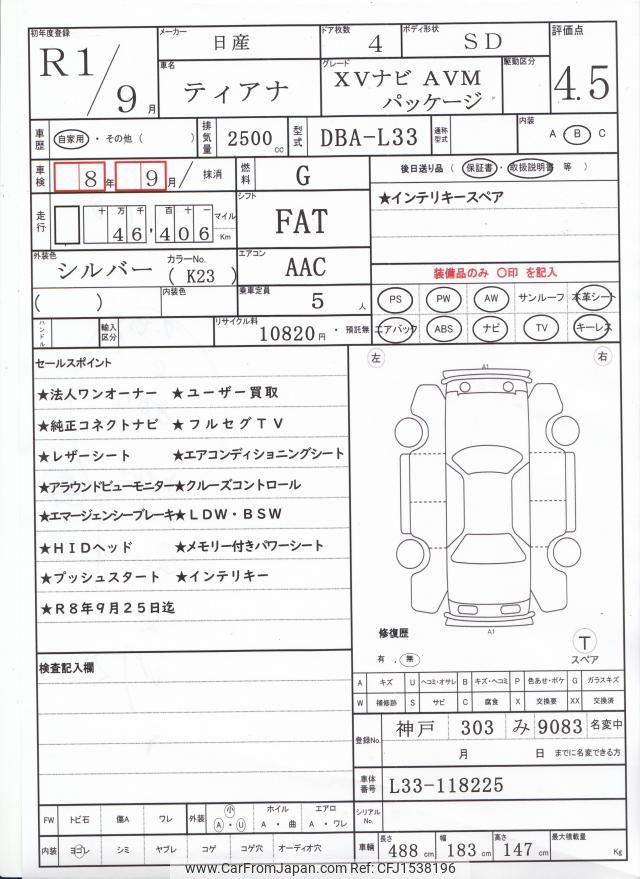 初年度登録 R1/9 月
メーカー 日産
ドア枚数 4
ボディ形状 SD
評価点 4.5
車名 ティアナ
グレード XVナビ AVM パッケージ
駆動区分
車歴 自家用 ・ その他 ( )
排気量 2500 cc
型式 DBA-L33
通称型式
内装 A ・ B C
車検 8 年 9 月 / 抹消
燃料 G
後日送り品 ( 保証書 ・ 取扱説明書 等 )
★インテリキースペア
走行 十 万 千 百 十 一 マイル
46,406 Km
シフト FAT
外装色 シルバー
カラーNo. ( K23 )
エアコン AAC
装備品のみ 〇印 を記入
( )
内装色
乗車定員 5 人
PS PW AW サンルーフ 本革シート
ハンドル
輸入区分
リサイクル料 10820 円 ・ 預託無
エアバック ABS ナビ TV キーレス
セールスポイント
★法人ワンオーナー ★ユーザー買取
★純正コネクトナビ ★フルセグTV
★レザーシート ★エアコンディショニングシート
★アラウンドビューモニター★クルーズコントロール
★エマージェンシーブレーキ★LDW・BSW
★HIDヘッド ★メモリー付きパワーシート
★プッシュスタート ★インテリキー
★R8年9月25日迄
左 右
A1
A1
修復歴
有 . 無
T
スペア
検査記入欄
A キズ U ヘコミ・オサレ B キズ・ヘコミ P 色あせ・ボケ G ガラスキズ
W 補修跡 S サビ C 腐食 X 交換要 XX 交換済
登録No. 神戸 303 み 9083 名変中
月 日 までに名変できる方
車体番号 L33-118225
シリアルNo.
FW トビ石 傷A ワレ 外装 小 A ・ U ホイル A ・ 曲 エアロ A ・ ワレ
内装 ヨゴレ シミ ヤブレ コゲ コゲ穴 オーディオ穴
車輛 長さ 488 cm 幅 183 cm 高さ 147 cm 最大積載量 Kg
www.CarFromJapan.com Ref: CFJ1538196